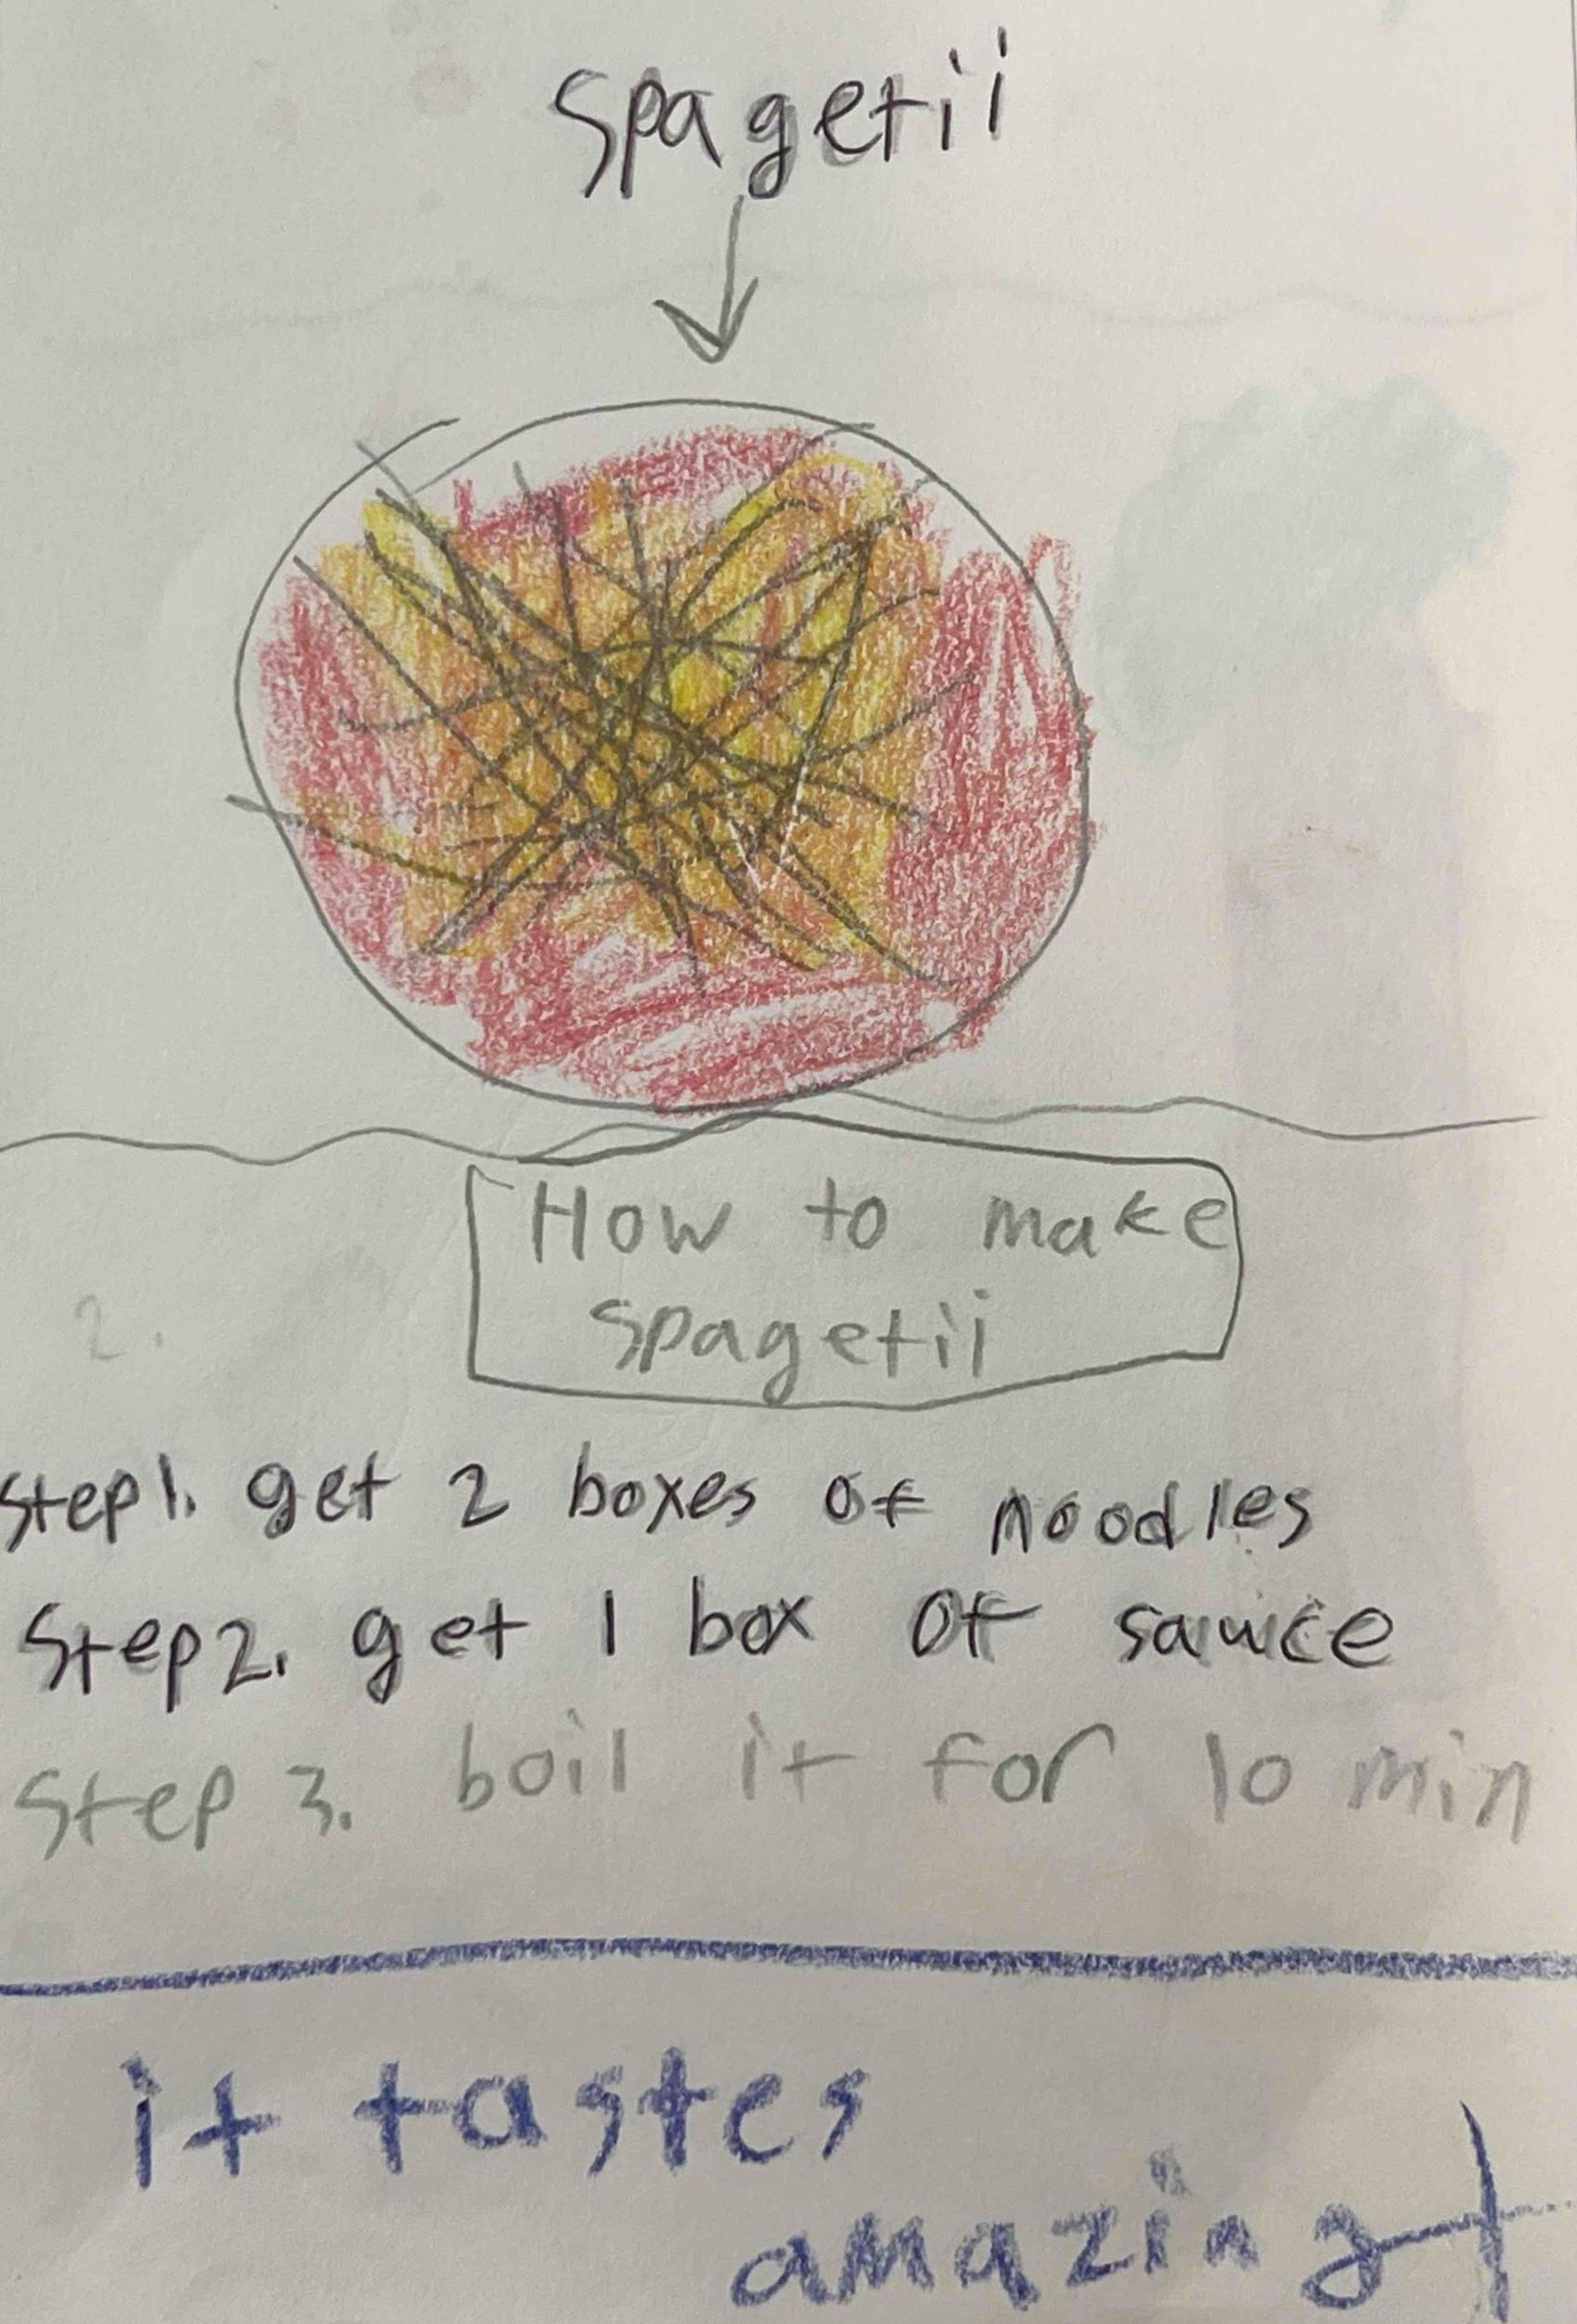 spagetii
2.
How to make
spagetii
step1. get 2 boxes of noodles
step2. get 1 box of sauce
step 3. boil it for 10 min
it tastes
amazing